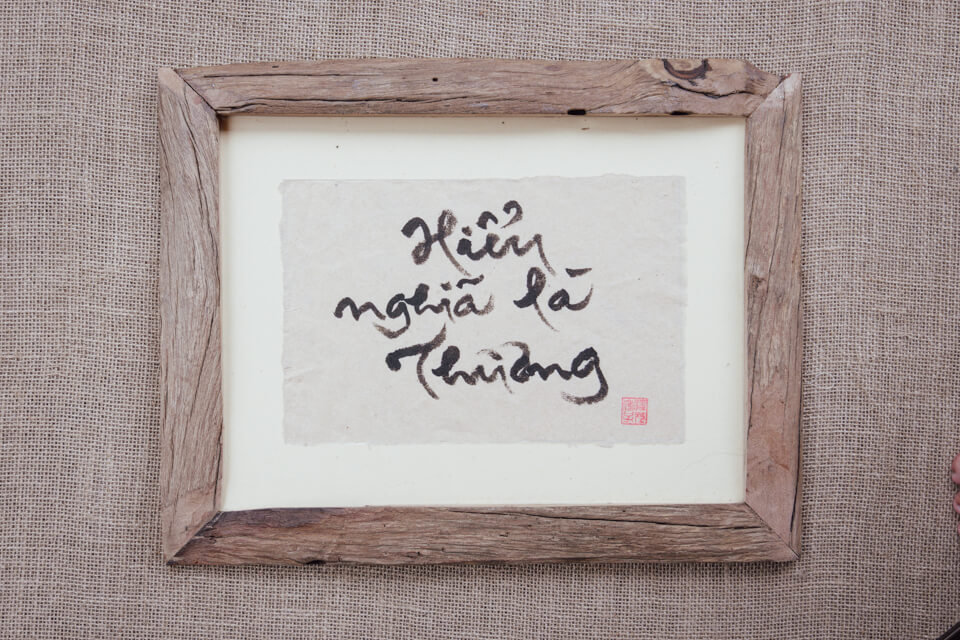 Hiểu
nghĩa là
Thương